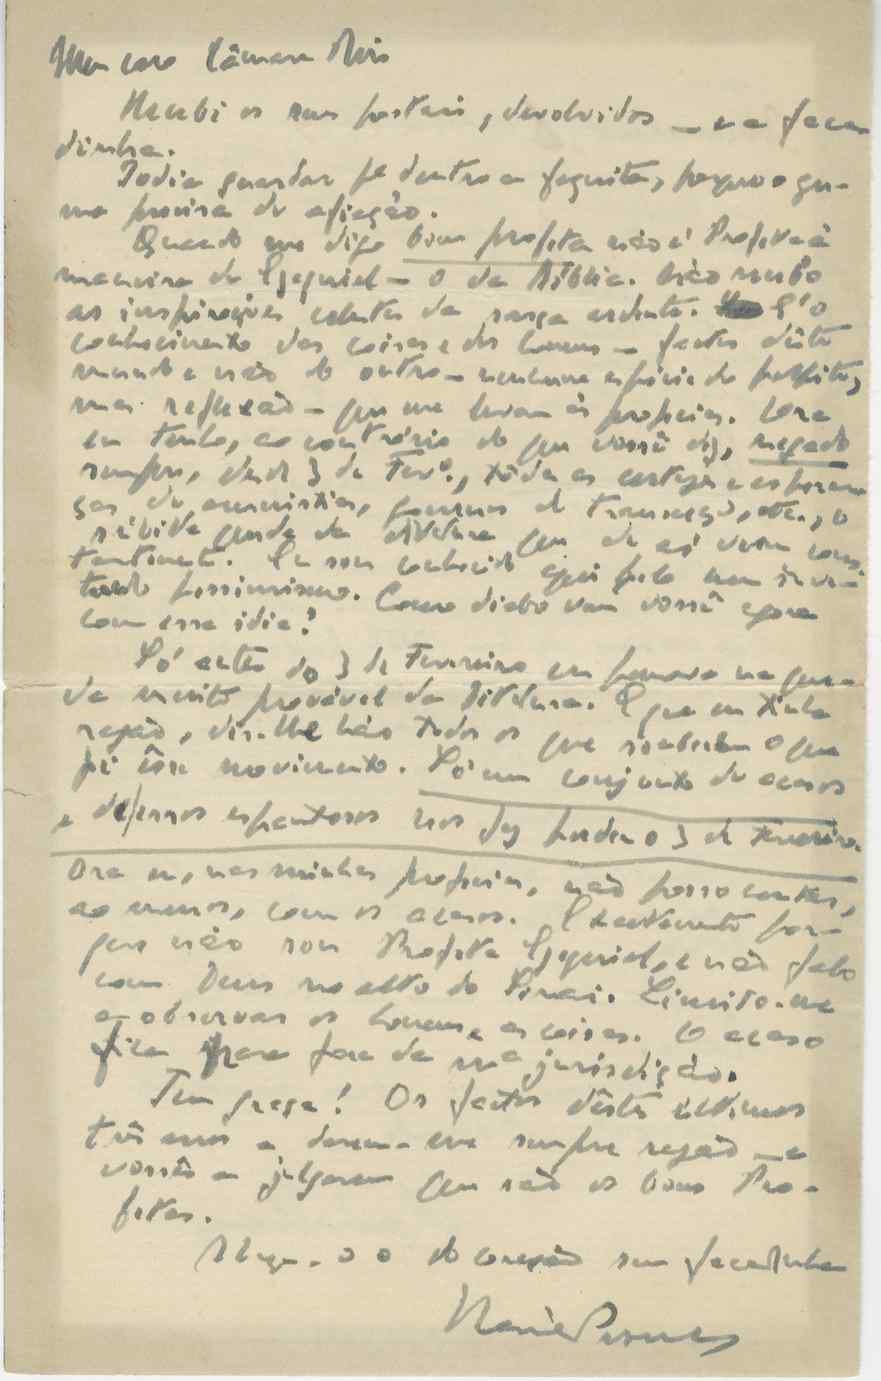 Meu caro Câmara Reis
Recebi os seus postais, devolvidos — e a faca-
dinha.
Podia guardar pª dentro a faquita, porque o gu-
me precisa de afiação.
Quando me digo bom profeta não é Profeta à
maneira de Ezequiel — o da Bíblia. Não recebo
as inspirações celestes da sarça ardente. É o
conhecimento das coisas e dos homens — factos dêste
mundo e não do outro — nenhuma espécie de palpites,
mas reflexão — que me levam às profecias. Ora
eu tenho, ao contrário do que você diz, negado
sempre, desde 3 de Fevº., tôdas as certezas e esperan-
ças de amnistias, governos de transição, etc., o
súbita queda da ditadura que de aí veem cons-
tantemente. Eu sou conhecido aqui pelo meu
pessimismo. Como diabo vem você agora
com essa ideia?
Só antes do 3 de Fevereiro eu pensava na que-
da muito provável da Ditadura. E que eu tinha
razão, dir-lhe hão todos os que souberem o que
foi êsse movimento. Só um conjunto de acasos
e de erros espantosos nos fez perder o 3 de Fevereiro.
Ora eu, nas minhas profecias, não posso contar,
ao menos, com os acasos. Exactamente por-
que não sou Profeta Ezequiel, e não falo
com Deus no alto do Sinai. Limito-me
a observar os homens e as coisas. O acaso
fica para fora da mª jurisdição.
Tem graça! Os factos dêstes últimos
três anos a darem-me sempre razão — e
vocês a julgarem que são os bons Pro-
fetas.
do coração seu facadinha